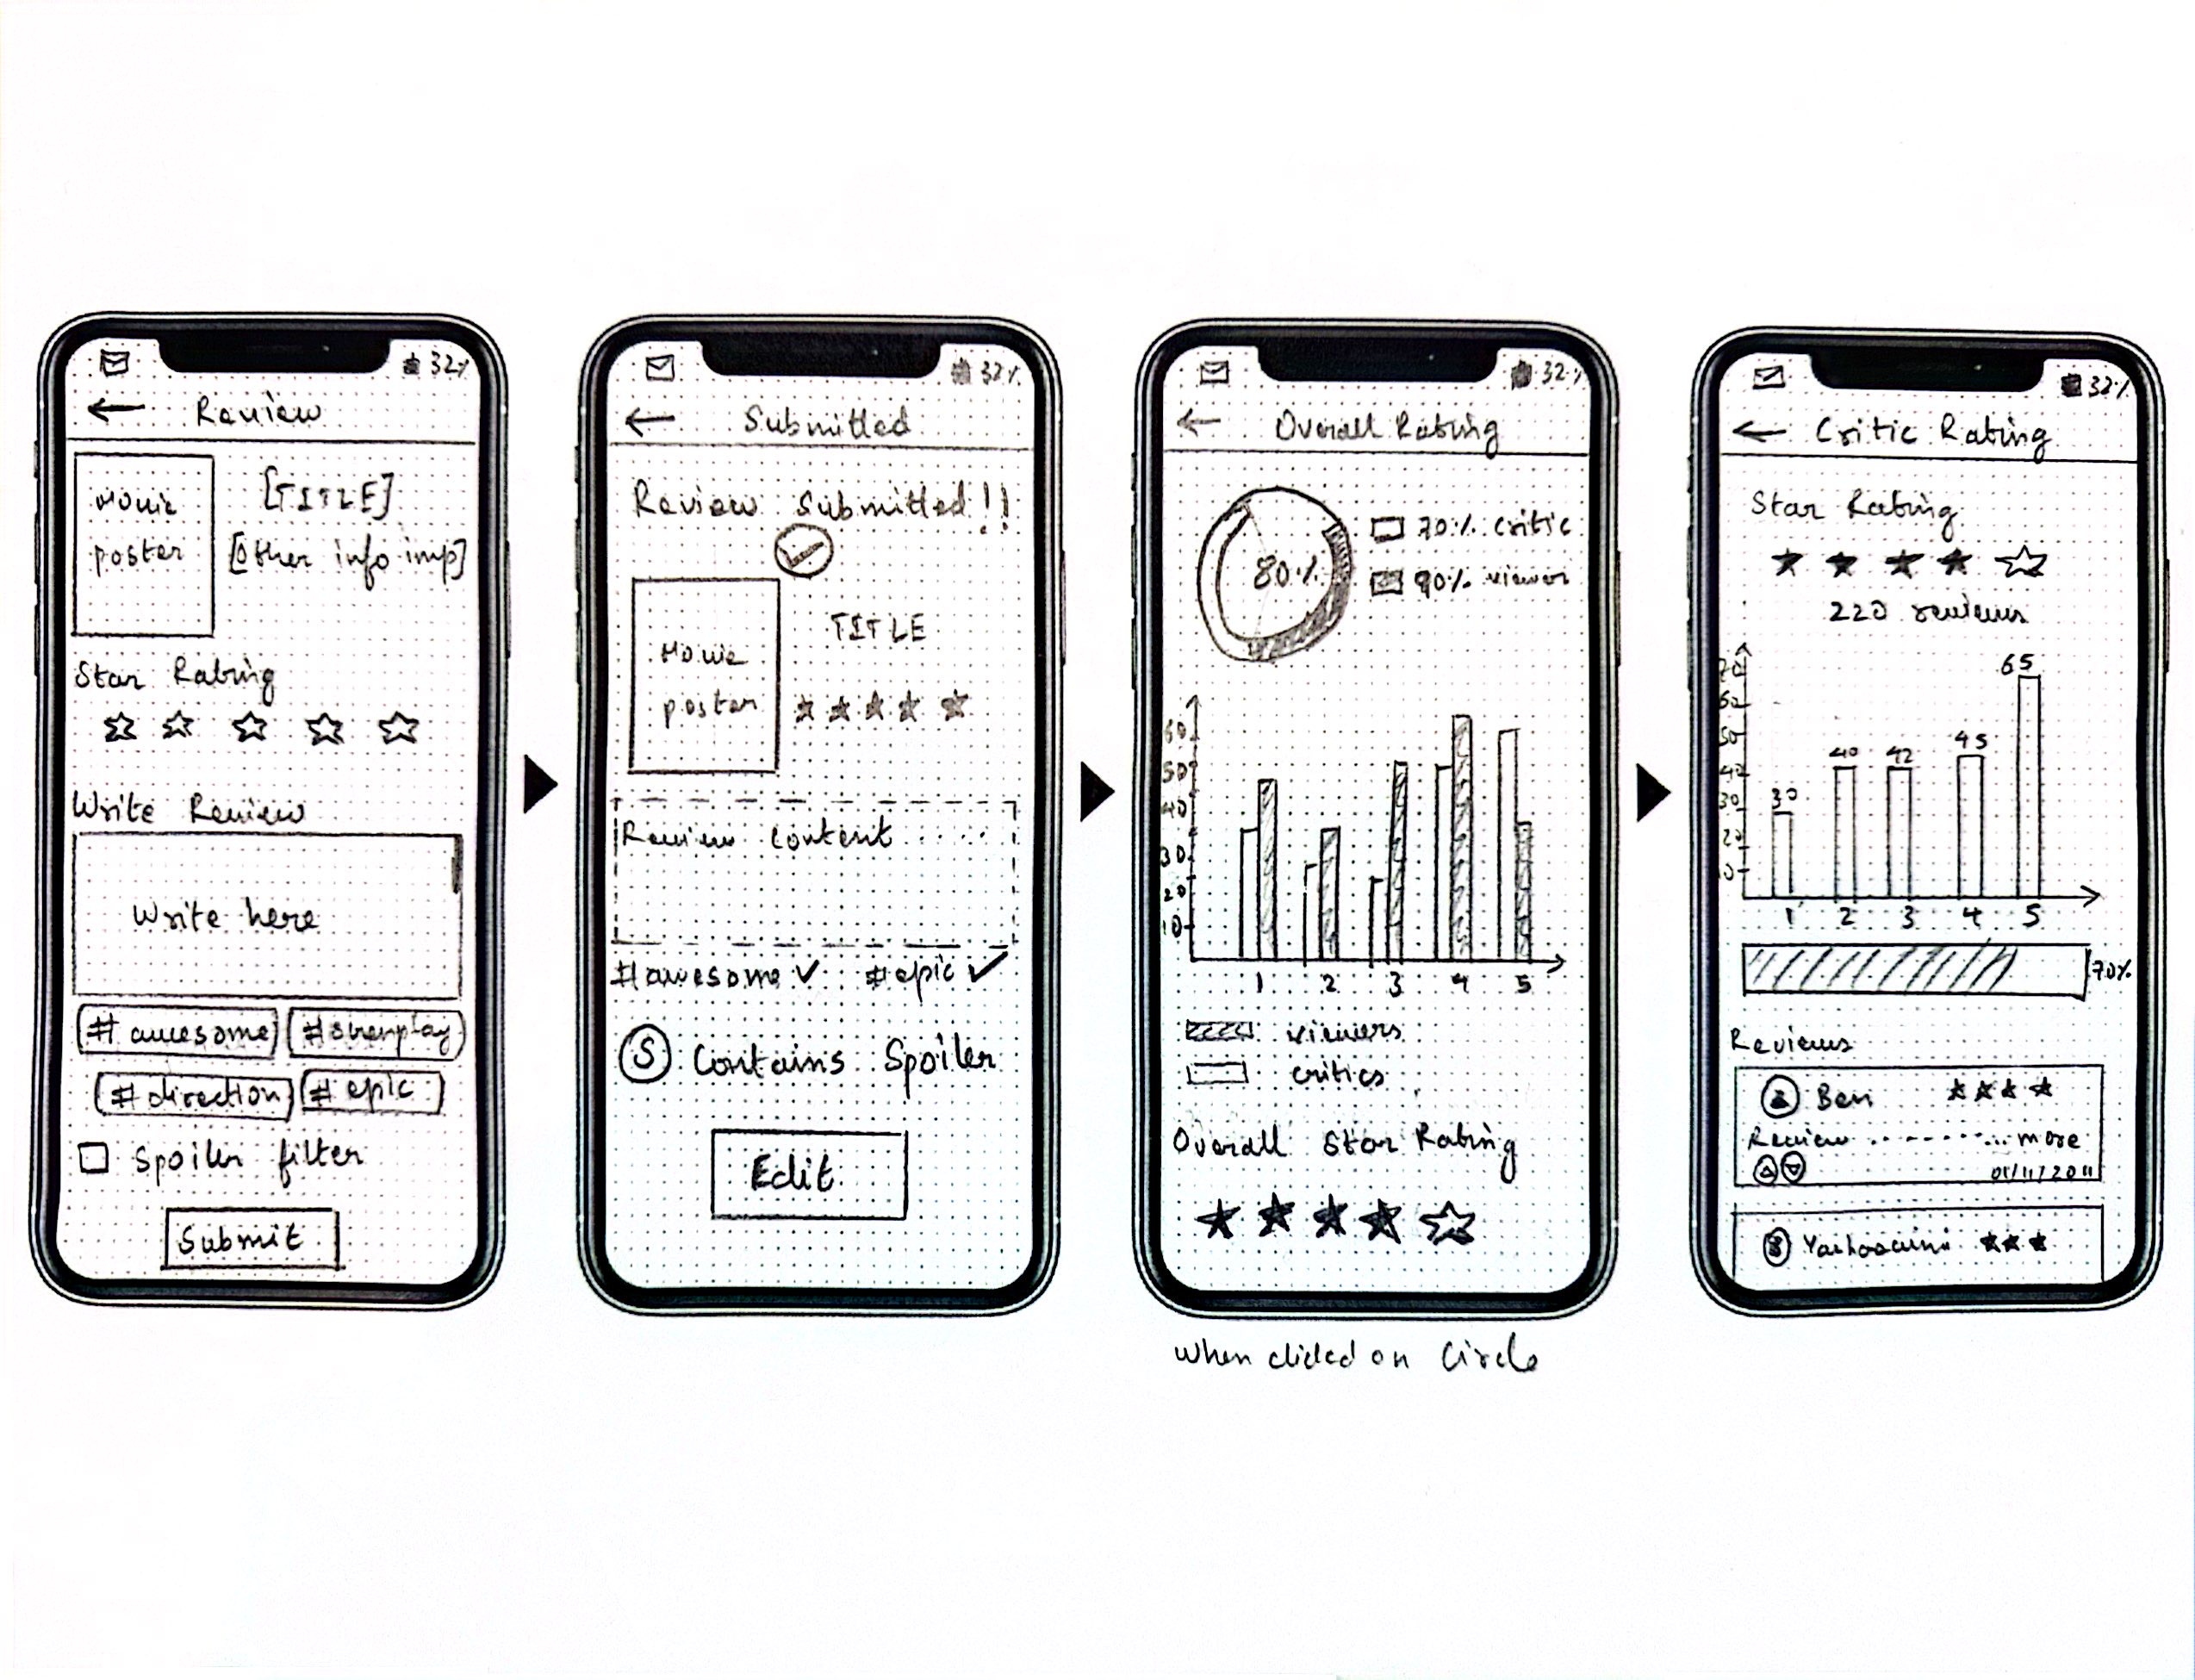 32%
Review
Movie
poster
[TITLE]
[Other info imp]
Star Rating
Write Review
Write here
#awesome
#direction
#epic
Spoiler filter
Submit
32%
Submitted
Review Submitted!!
Movie
poster
TITLE
Review Content ....
#awesome #epic
S Contains Spoiler
Edit
32%
Overall Rating
80%
70% critic
90% viewer
60
50
40
30
20
10
1 2 3 4 5
viewers
critics
Overall Star Rating
When clicked on Circle
32%
Critic Rating
Star Rating
220 reviews
70
60
50
40
30
20
10
30 40 42 45 65
1 2 3 4 5
70%
Reviews
Ben
Review ......... more